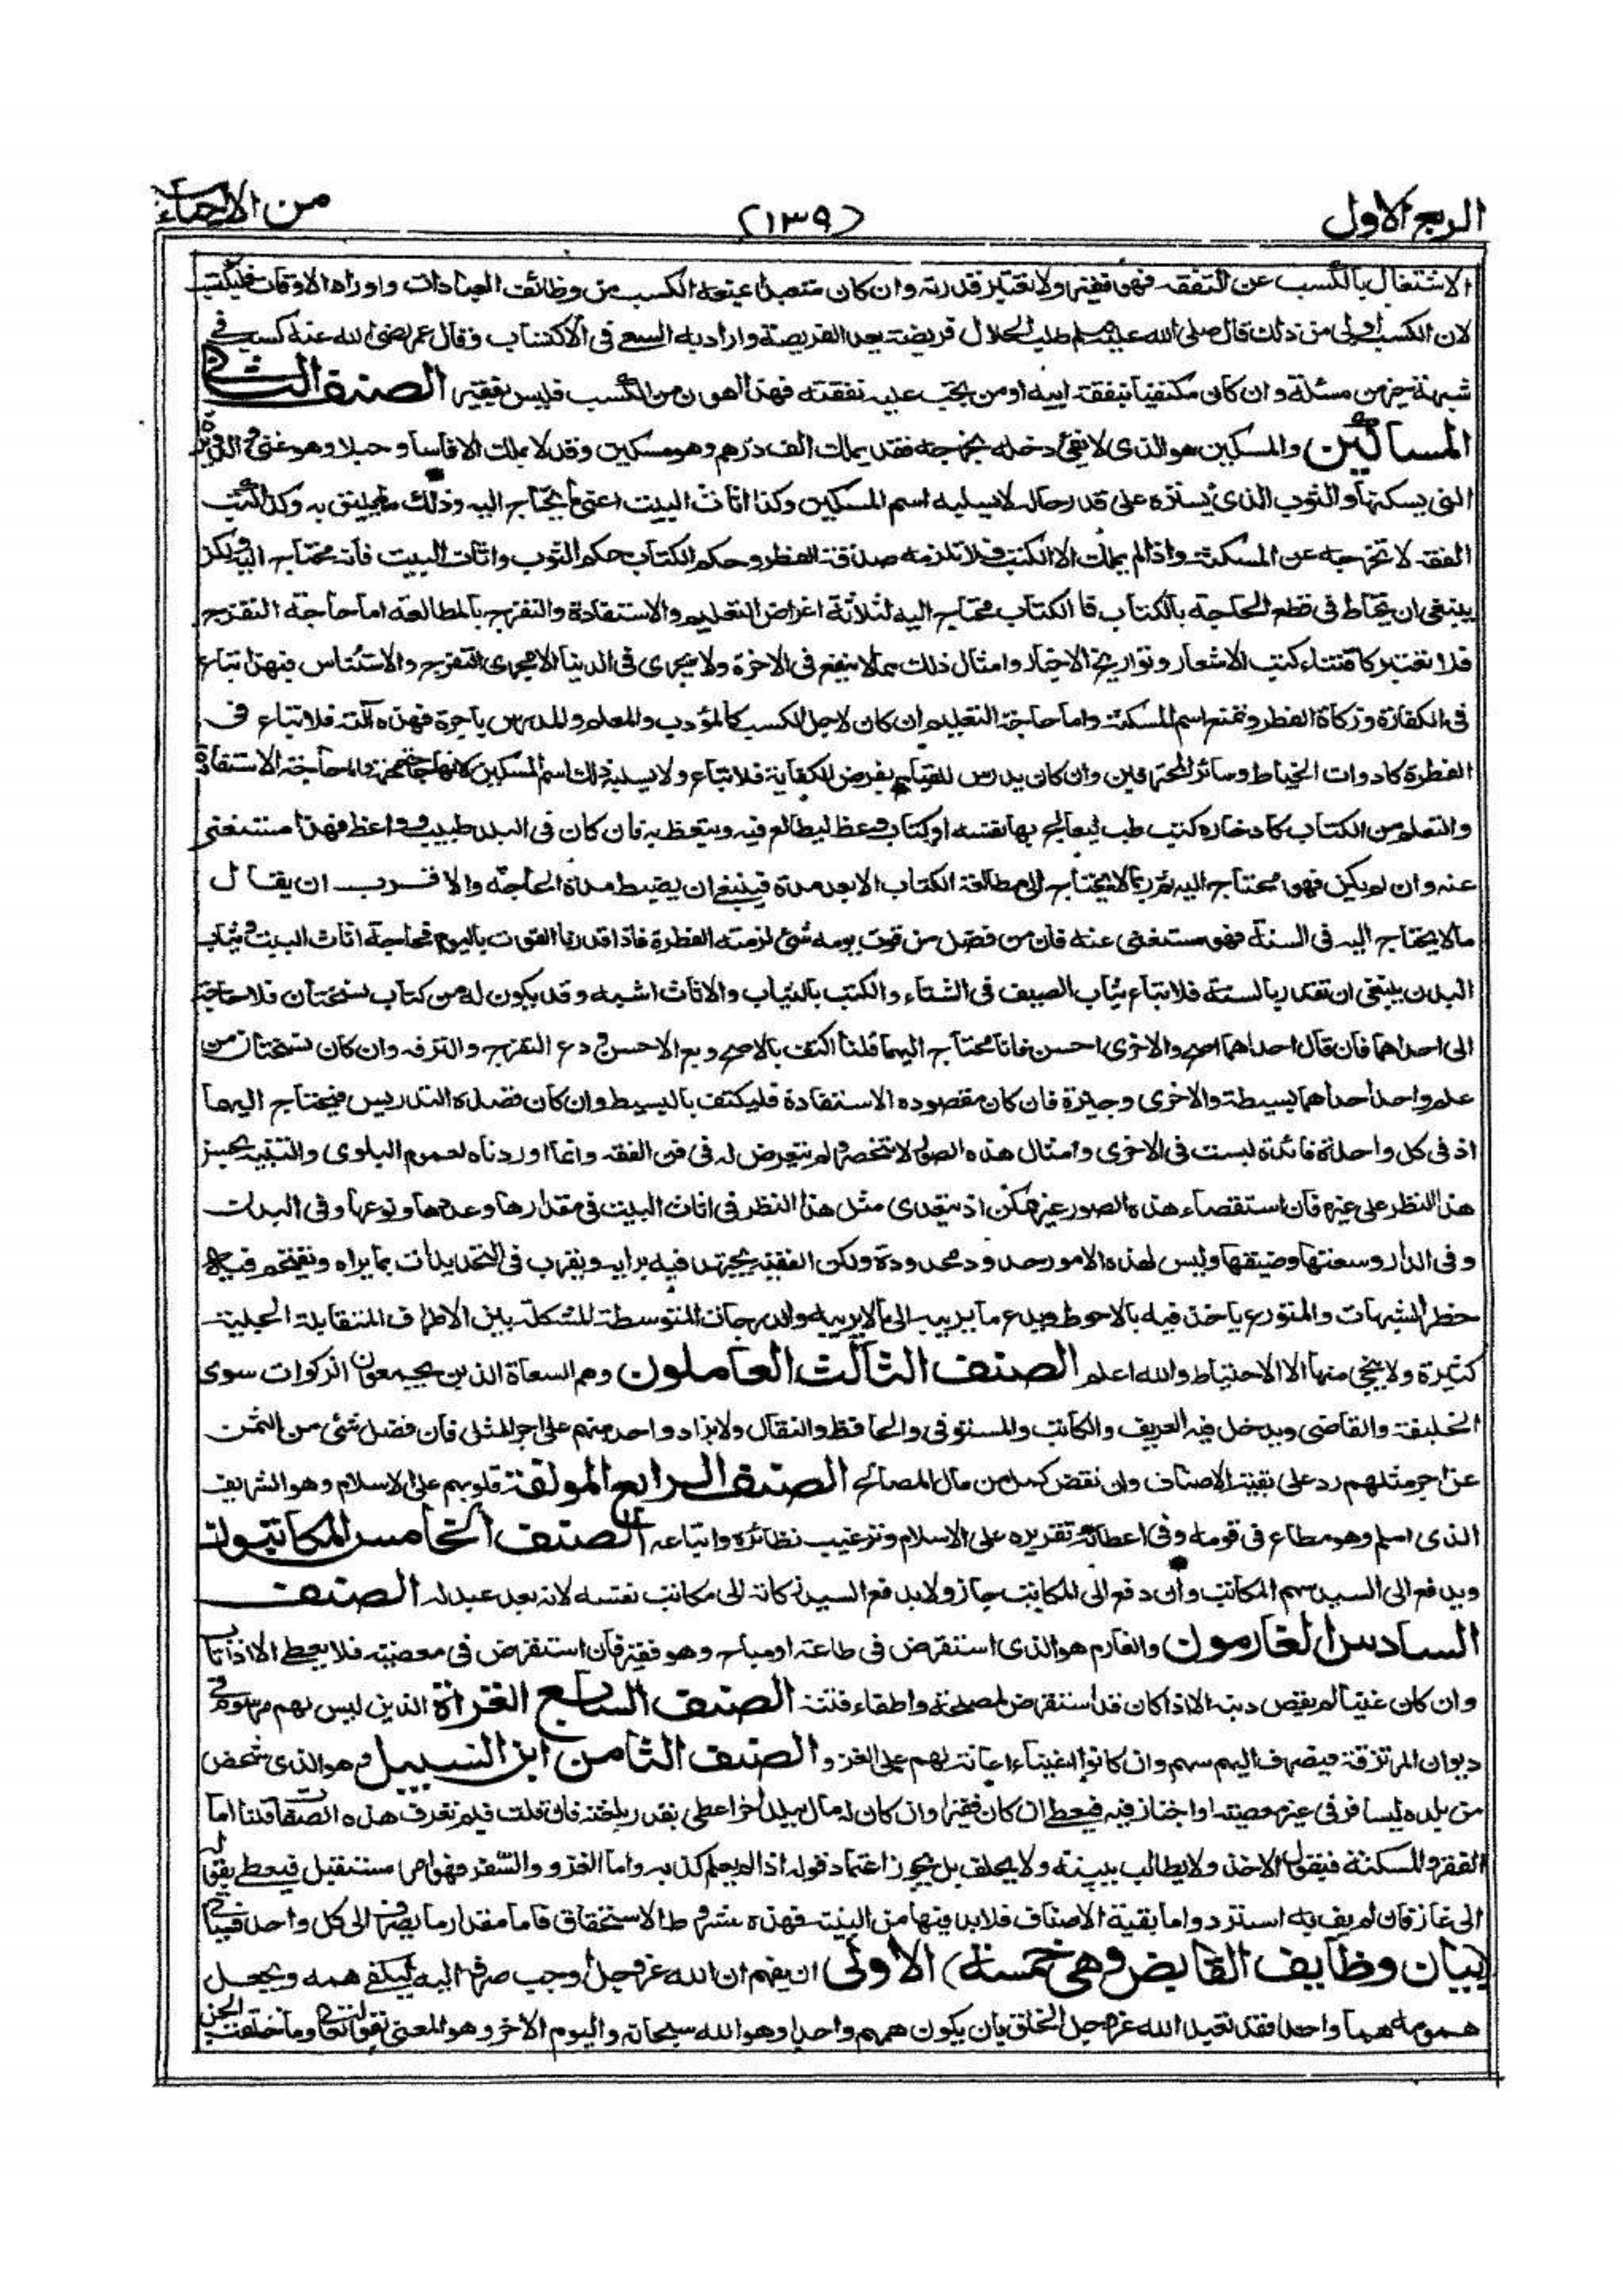 الربع الاول
(١٣٩)
من الاحياء
الاشتغال بالكسب عن التفقه فهو فقير ولا تعتبر قدرته وان كان متعبدا يمنعه الكسب من وظائف العبادات واوراد الاوقات فليكتسب
لان الكسب اولى من ذلك قال صلى الله عليه وسلم طلب الحلال فريضة بعد الفريضة واراد به السعى فى الاكتساب وقال عمر رضى الله عنه كسب فى
شبهة خير من مسئلة وان كان مكتفيا بنفقة ابيه او من يجب عليه نفقته فهذا اهون من الكسب فليس بفقير الصنف الثانى
المساكين والمسكين هو الذى لا يفى دخله بخرجه فقد يملك الف درهم وهو مسكين وقد لا يملك الا فاسا وحبلا وهو غنى والدويرة
التى يسكنها والثوب الذى يستره على قدر حاله لا يسلبه اسم المسكين وكذا اثاث البيت اعنى ما يحتاج اليه وذلك ما يليق به وكذا كتب
الفقه لا تخرجه عن المسكنة واذا لم يملك الا الكتب فلا تلزمه صدقة الفطر وحكم الكتاب حكم الثوب واثاث البيت فانه محتاج اليه ولكن
ينبغى ان يحتاط فى قطع الحاجة بالكتاب فالكتاب محتاج اليه لثلاثة اغراض التعليم والاستفادة والتفرج بالمطالعة اما حاجة التفرج
فلا تعتبر كاقتناء كتب الاشعار وتواريخ الاخبار وامثال ذلك مما لا ينفع فى الاخرة ولا يجرى فى الدنيا الا مجرى التفرج والاستئناس فهذا تباع
فى الكفارة وزكاة الفطر وتمنع اسم المسكنة واما حاجة التعليم ان كان لاجل الكسب كالمؤدب والمعلم والمدرس باجرة فهذه آلته فلا تباع فى
الفطرة كادوات الخياط وسائر المحترفين وان كان يدرس للقيام بفرض الكفاية فلا تباع ولا يسلبه ذلك اسم المسكين لانها حاجة مهمة واما حاجة الاستفادة
والتعلم من الكتاب كادخاره كتب طب ليعالج بها نفسه او كتاب وعظ ليطالع فيه ويتعظ به فان كان فى البلد طبيب وواعظ فهذا مستغنى
عنه وان لم يكن فهو محتاج اليه ثم ربما لا يحتاج الى مطالعة الكتاب الا بعد مدة فينبغى ان يضبط مدة الحاجة والاقرب ان يقال
مالا يحتاج اليه فى السنة فهو مستغنى عنه فان من فضل من قوت يومه شئ لزمته الفطرة فاذا قدرنا القوت باليوم فحاجة اثاث البيت وثياب
البدن ينبغى ان تقدر بالسنة فلا تباع ثياب الصيف فى الشتاء والكتب بالثياب والاثاث اشبه وقد يكون له من كتاب نسختان فلا حاجة
الى احداهما فان قال احداهما اصح والاخرى احسن فانا محتاج اليهما قلنا اكتف بالاصح وبع الاحسن ودع التفرج والترفه وان كان نسختان من
علم واحد احداهما بسيطة والاخرى وجيزة فان كان مقصوده الاستفادة فليكتف بالبسيط وان كان قصده التدريس فيحتاج اليهما
اذ فى كل واحدة فائدة ليست فى الاخرى وامثال هذه الصور لا تنحصر ولم نتعرض له فى فن الفقه وانما اوردناه لعموم البلوى والتنبيه بحسن
هذا النظر على غيره فان استقصاء هذه الصور غير ممكن اذ يتعدى مثل هذا النظر فى اثاث البيت فى مقدارها وعددها ونوعها وفى البدن
وفى الدار وسعتها وضيقها وليس لهذه الامور حدود محدودة ولكن الفقيه يجتهد فيه برايه ويقرب فى التحديدات بما يراه ويقتحم فيه
خطر الشبهات والمتورع ياخذ فيه بالاحوط ويدع ما يريبه الى مالا يريبه والدرجات المتوسطة المشكلة بين الاطراف المتقابلة الجلية
كثيرة ولا ينجى منها الا الاحتياط والله اعلم الصنف الثالث العاملون وهم السعاة الذين يجمعون الزكوات سوى
الخليفة والقاضى ويدخل فيه العريف والكاتب والمستوفى والحافظ والنقال ولا يزاد واحد منهم على اجر المثل فان فضل شئ من الثمن
عن اجر مثلهم رد على بقية الاصناف وان نقص كمل من مال المصالح الصنف الرابع المولفة قلوبهم على الاسلام وهو الشريف
الذى اسلم وهو مطاع فى قومه وفى اعطائه تقريره على الاسلام وترغيب نظائره واتباعه الصنف الخامس المكاتبون
ويدفع الى السيد سهم المكاتب وان دفع الى المكاتب جاز ولا يدفع السيد زكاته الى مكاتب نفسه لانه بعد عبد له الصنف
السادس الغارمون والغارم هو الذى استقرض فى طاعة او مباح وهو فقير فان استقرض فى معصية فلا يعطى الا اذا تاب
وان كان غنيا لم يقض دينه الا اذا كان قد استقرض لمصلحة واطفاء فتنة الصنف السابع الغزاة الذين ليس لهم مرسوم فى
ديوان المرتزقة فيصرف اليهم سهم وان كانوا اغنياء اعانة لهم على الغزو الصنف الثامن ابن السبيل وهو الذى شخص
من بلده ليسافر فى غير معصية او اجتاز فيه فيعطى ان كان فقيرا وان كان له مال ببلد اخر اعطى بقدر بلغته فان قلت فبم تعرف هذه الصفات قلنا اما
الفقر والمسكنة فبقول الاخذ ولا يطالب ببينة ولا يحلف بل يجوز اعتماد قوله اذا لم يعلم كذبه واما الغزو والسفر فهو امر مستقبل فيعطى بقوله
انى غاز فان لم يف به استرد واما بقية الاصناف فلا بد فيها من البينة فهذه شروط الاستحقاق فاما مقدار ما يصرف الى كل واحد فسياتى
(بيان وظايف القابض وهى خمسة) الاولى ان يفهم ان الله عز وجل اوجب صرف اليه ليكفى همه ويجعل
همومه هما واحدا فقد تعبد الله عز وجل الخلق بان يكون همهم واحدا وهو الله سبحانه واليوم الاخر وهو المعنى بقوله تعالى وما خلقت الجن